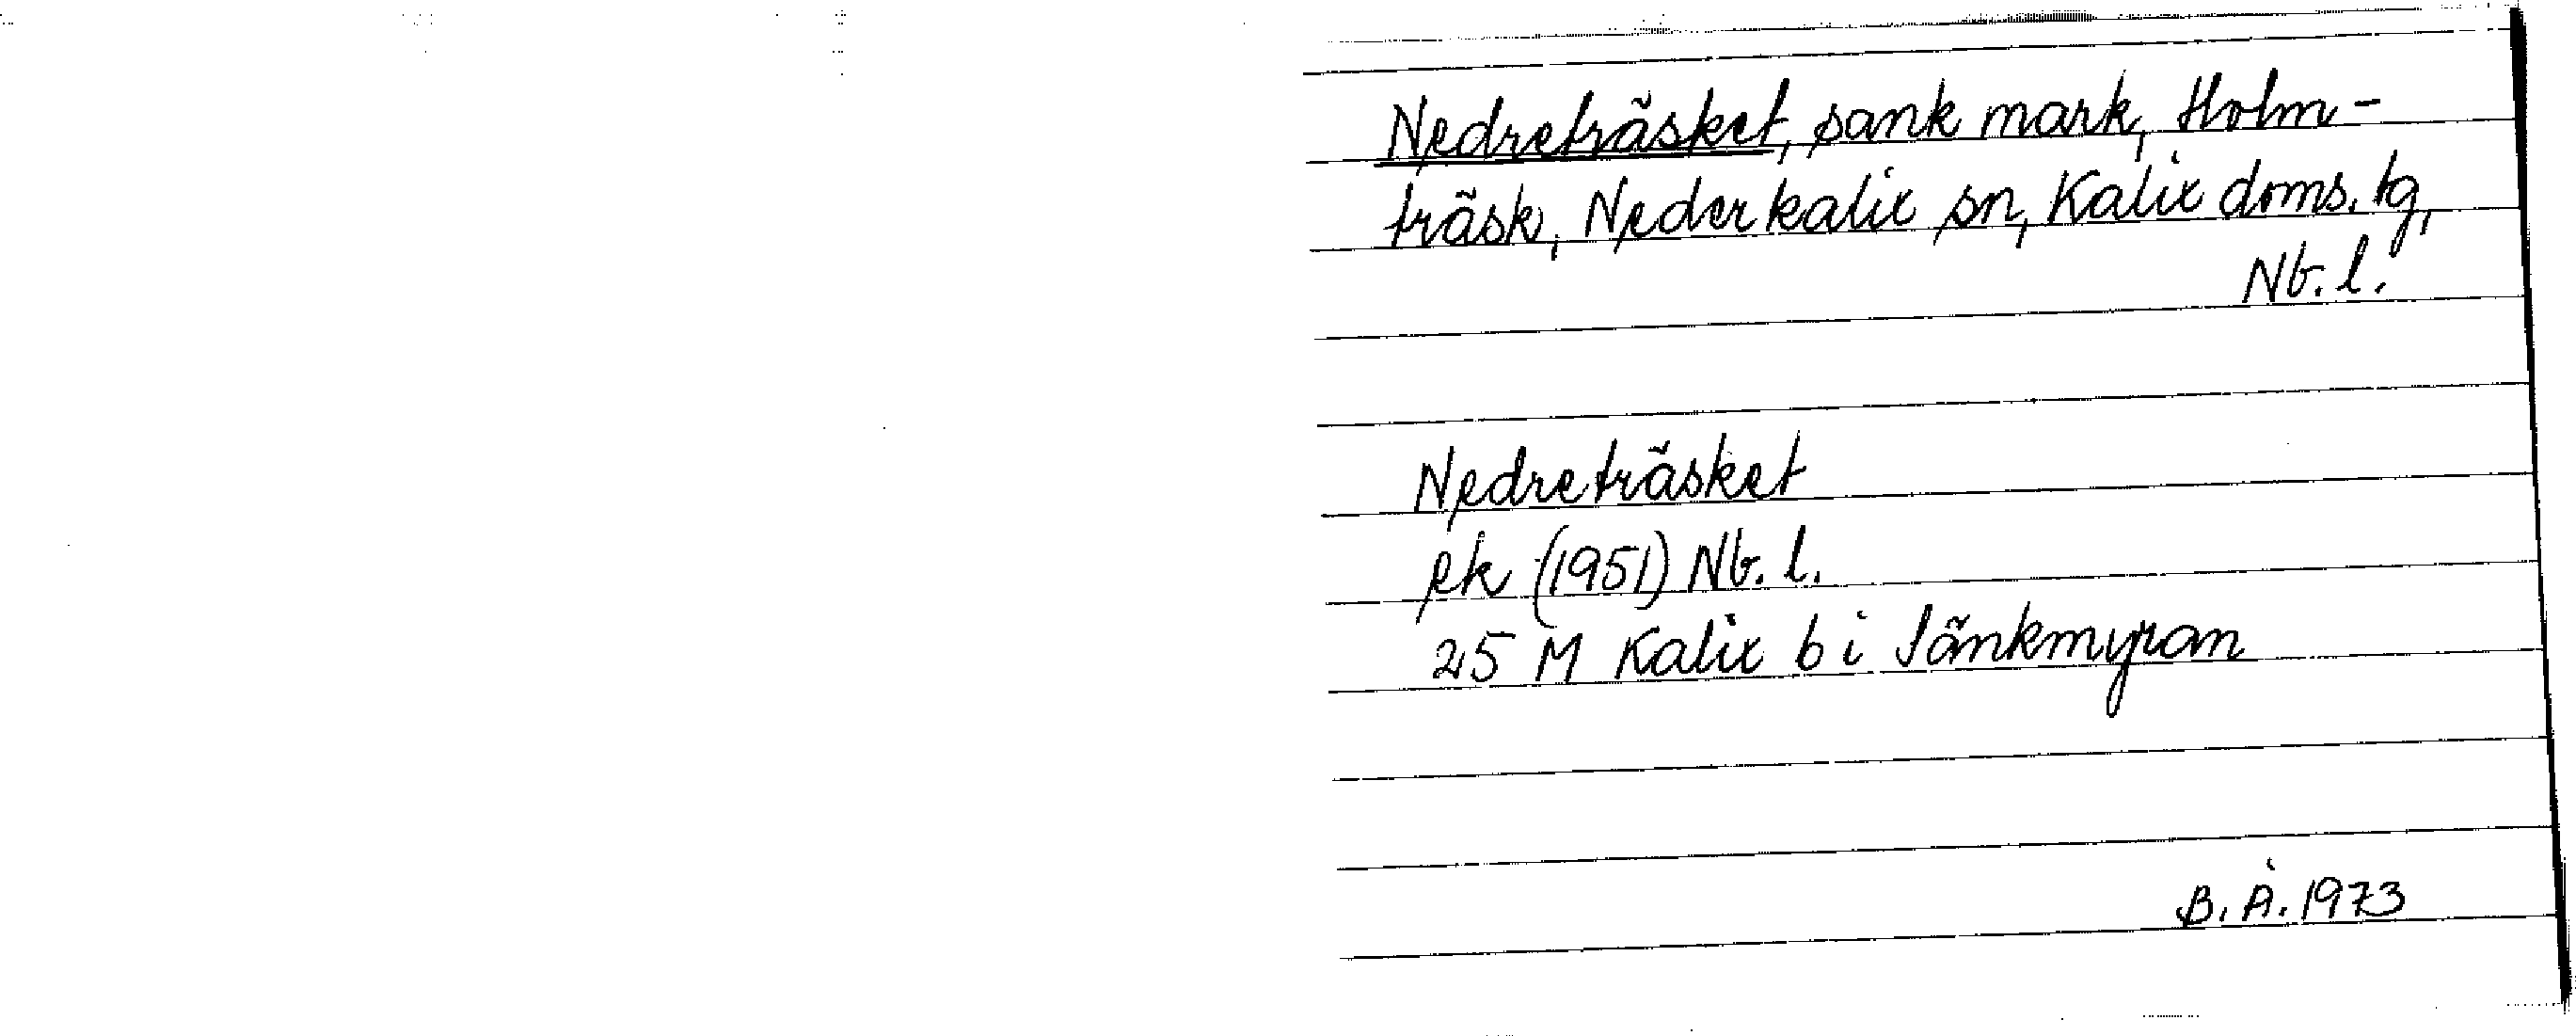 Nedreträsket, sank mark, Holm-
träsk, Nederkalix sn, Kalix doms. tg,
Nb. l.
Nedreträsket
ek (1951) Nb. l.
25 M Kalix b i Sänkmyran
B. Å. 1973